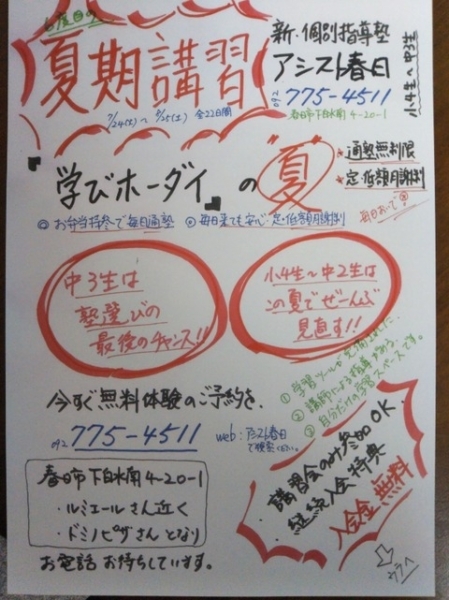 七度目の
夏期講習
7/24(火)〜8/25(土) 全22日間
新・個別指導塾
アシスト春日
092
775-4511
春日市下白水南4-20-1
小4生〜中3生
『学びホーダイ』の“夏”
*通塾無制限
*定・低額月謝制
毎日おいで
◎お弁当持参で毎日通塾 ◎毎日来ても安心・定・低額月謝制
中3生は
塾選びの
最後のチャンス!!
小4生〜中2生は
この夏でぜーんぶ
見直す!!
①学習ツールが完備ました。
②講師による指導があり、
③自分だけの学習スペースです。
今すぐ無料体験のご予約を.
092 775-4511
web:アシスト春日
で検索ください。
・講習会のみ参加OK
・継続入会特典
入会金無料
春日市下白水南4-20-1
・ルミエールさん近く
・ドミノピザさんとなり
お電話お待ちしています。
ウラへ